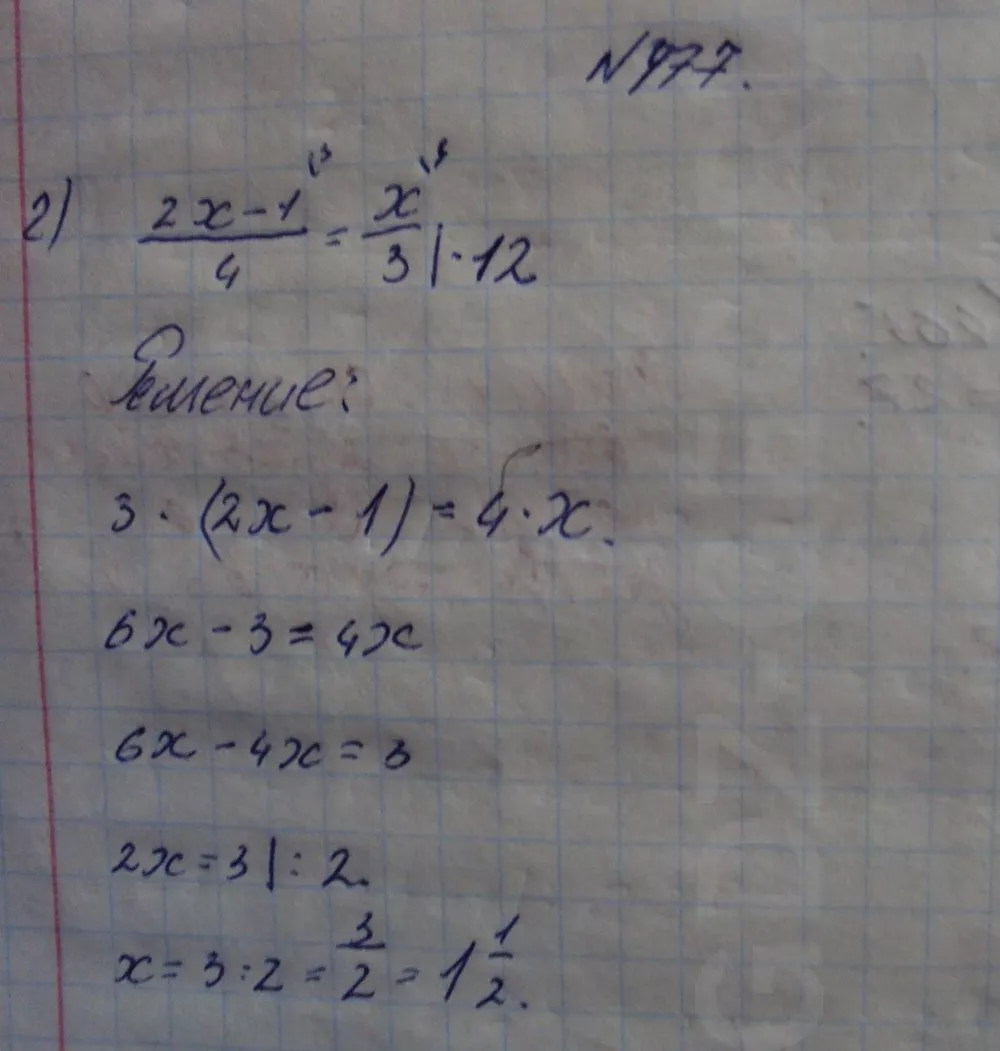 №977.
2) (2x-1)/4 = x/3 | · 12
Решение:
3 · (2x - 1) = 4 · x.
6x - 3 = 4x
6x - 4x = 3
2x = 3 | : 2.
x = 3 : 2 = 3/2 = 1 1/2.